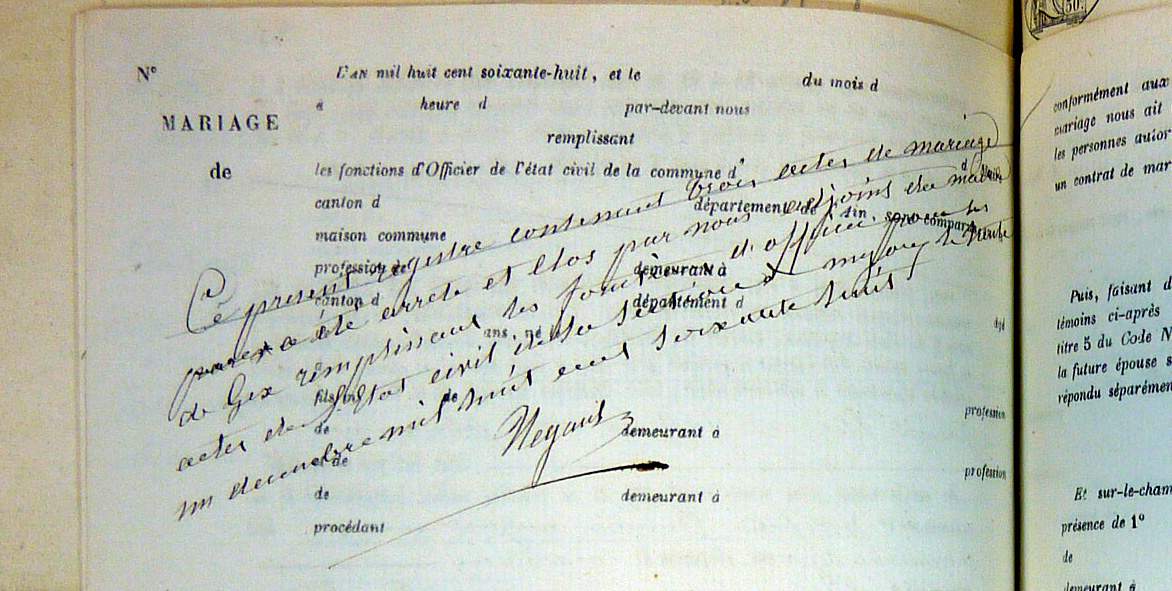 N°
L'AN mil huit cent soixante-huit, et le du mois d
à heure d par-devant nous
MARIAGE
remplissant
de
les fonctions d'Officier de l'état civil de la commune d
canton d département de l'Ain, sont comparu
maison commune
profession de demeurant à
canton d département d
ans, né
fils de
de demeurant à
profession
et de
profession
de demeurant à
procédant
Ce present registre contenant trois actes de mariage
a été arrêté et Clos par nous adjoint du maire
de Gex remplissant les fonctions d'officier pour les
actes de l'Etat civil de la section de le trente
un decembre mil huit cent soixante huit
50.
conformément aux
mariage nous ait
les personnes autor
un contrat de mar
Puis, faisant d
témoins ci-après
titre 5 du Code N
la future épouse s
répondu séparémen
Et sur-le-cham
présence de 1°
de
demeurant à